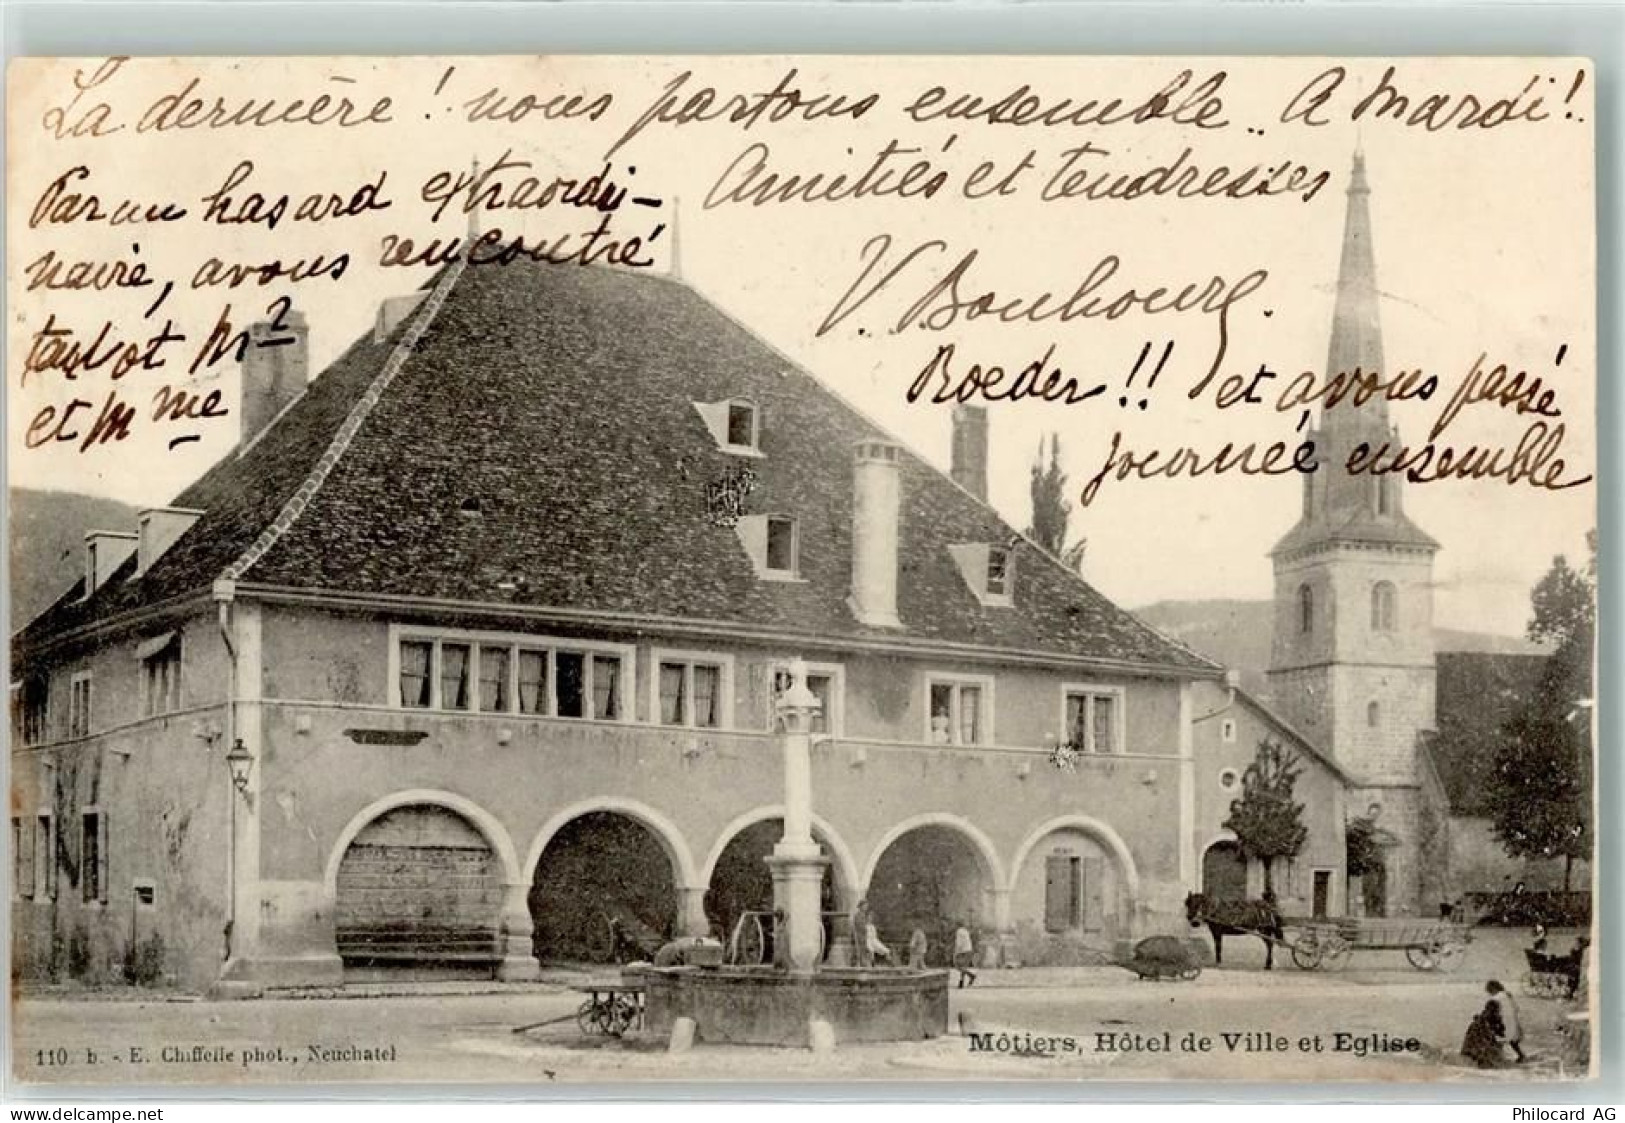 La dernière ! nous partons ensemble .. A Mardi !
Amitiés et tendresses
V. Bonhourg.
Par un hasard extraordi-
naire, avons rencontré
tantot Mr
et Mme
Roeder !! et avons passé
journée ensemble
110. b. - E. Chiffelle phot., Neuchatel
Môtiers, Hôtel de Ville et Eglise
picclick.com
Philocard AG